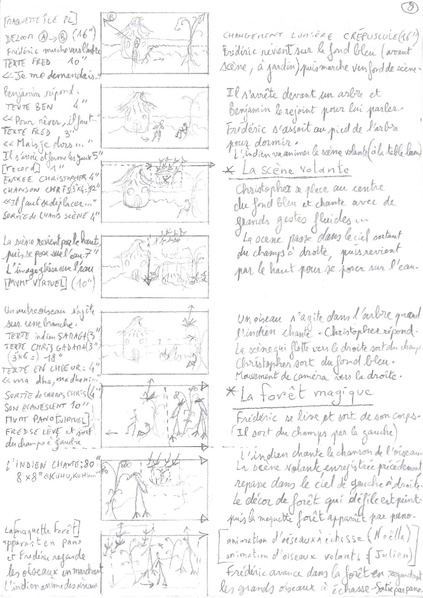 [MAQUETTE ÎLE PL]
DEZOOM A→B (16")
Frédéric marche vers l'arbre
TEXTE FRED 10"
<<Je me demandais."
Benjamin répond.
TEXTE BEN 4"
<<Pour rêver, il faut..."
TEXTE FRED 3"
<<Mais je dors..."
Il s'assoit et ferme les yeux 5"
ENTREE CHRISTOPHER 4"
CHANSON CHRIS
<<Il faut se déplacer..."
SORTIE du CHAMP SCÈNE 4"
La scène revient par le haut,
puis se pose sur l'eau. 7"
L'image glisse sur l'eau
[PIVOT VIRTUEL] (10")
Un autre oiseau s'agite
sur une branche.
TEXTE indien SARAGA (3"
TEXTE CHRIS GADAMA (3"
(3x6=) -18"
TEXTE EN CHŒUR: 4"
SORTIE du CHAMPS CHRIS (4"
SON 10"
PIVOT PANO [VIRTUEL]
FRED SE LEVE et sort
du champs à gauche
L'INDIEN CHANTE: 80"
La [maquette forêt]
apparait en PANO
et Frédéric regarde
les oiseaux en marchant
l'indien anime des oiseaux
8
CHANGEMENT LUMIÈRE CRÉPUSCULE (16")
Frédéric revient sur le fond bleu (avant
scène, à jardin), puis marche vers fond de scène.
Il s'arrête devant un arbre et
Benjamin le rejoint pour lui parler.
Frédéric s'assoit au pied de l'arbre
pour dormir.
L'indien va animer la scène volante (à la table lumi)
* La scène volante
Christopher se place au centre
du fond bleu et chante avec de
grands gestes fluides...
La scène passe dans le ciel sortant
du champs à droite, puis revient
par le haut pour se poser sur l'eau.
Un oiseau s'agite dans l'arbre quand
l'indien chante. Christopher répond.
La scène qui flotte vers la droite sort du champ
Christopher sort du fond bleu.
Mouvement de caméra vers la droite.
* La forêt magique
Frédéric se lève et sort de son corps.
(Il sort du champs par la gauche)
L'indien chante la chanson de l'oiseau.
La scène volante enregistrée précédemment
repasse dans le ciel de gauche à droite.
le décor de forêt qui défile est peint
puis la maquette forêt apparait par pano.
[animation d'oiseaux à échasse (Noëlle)
animation d'oiseaux volants (Julien)]
Frédéric avance dans la forêt en regardant
les grands oiseaux à échasse. Sortie par pano.